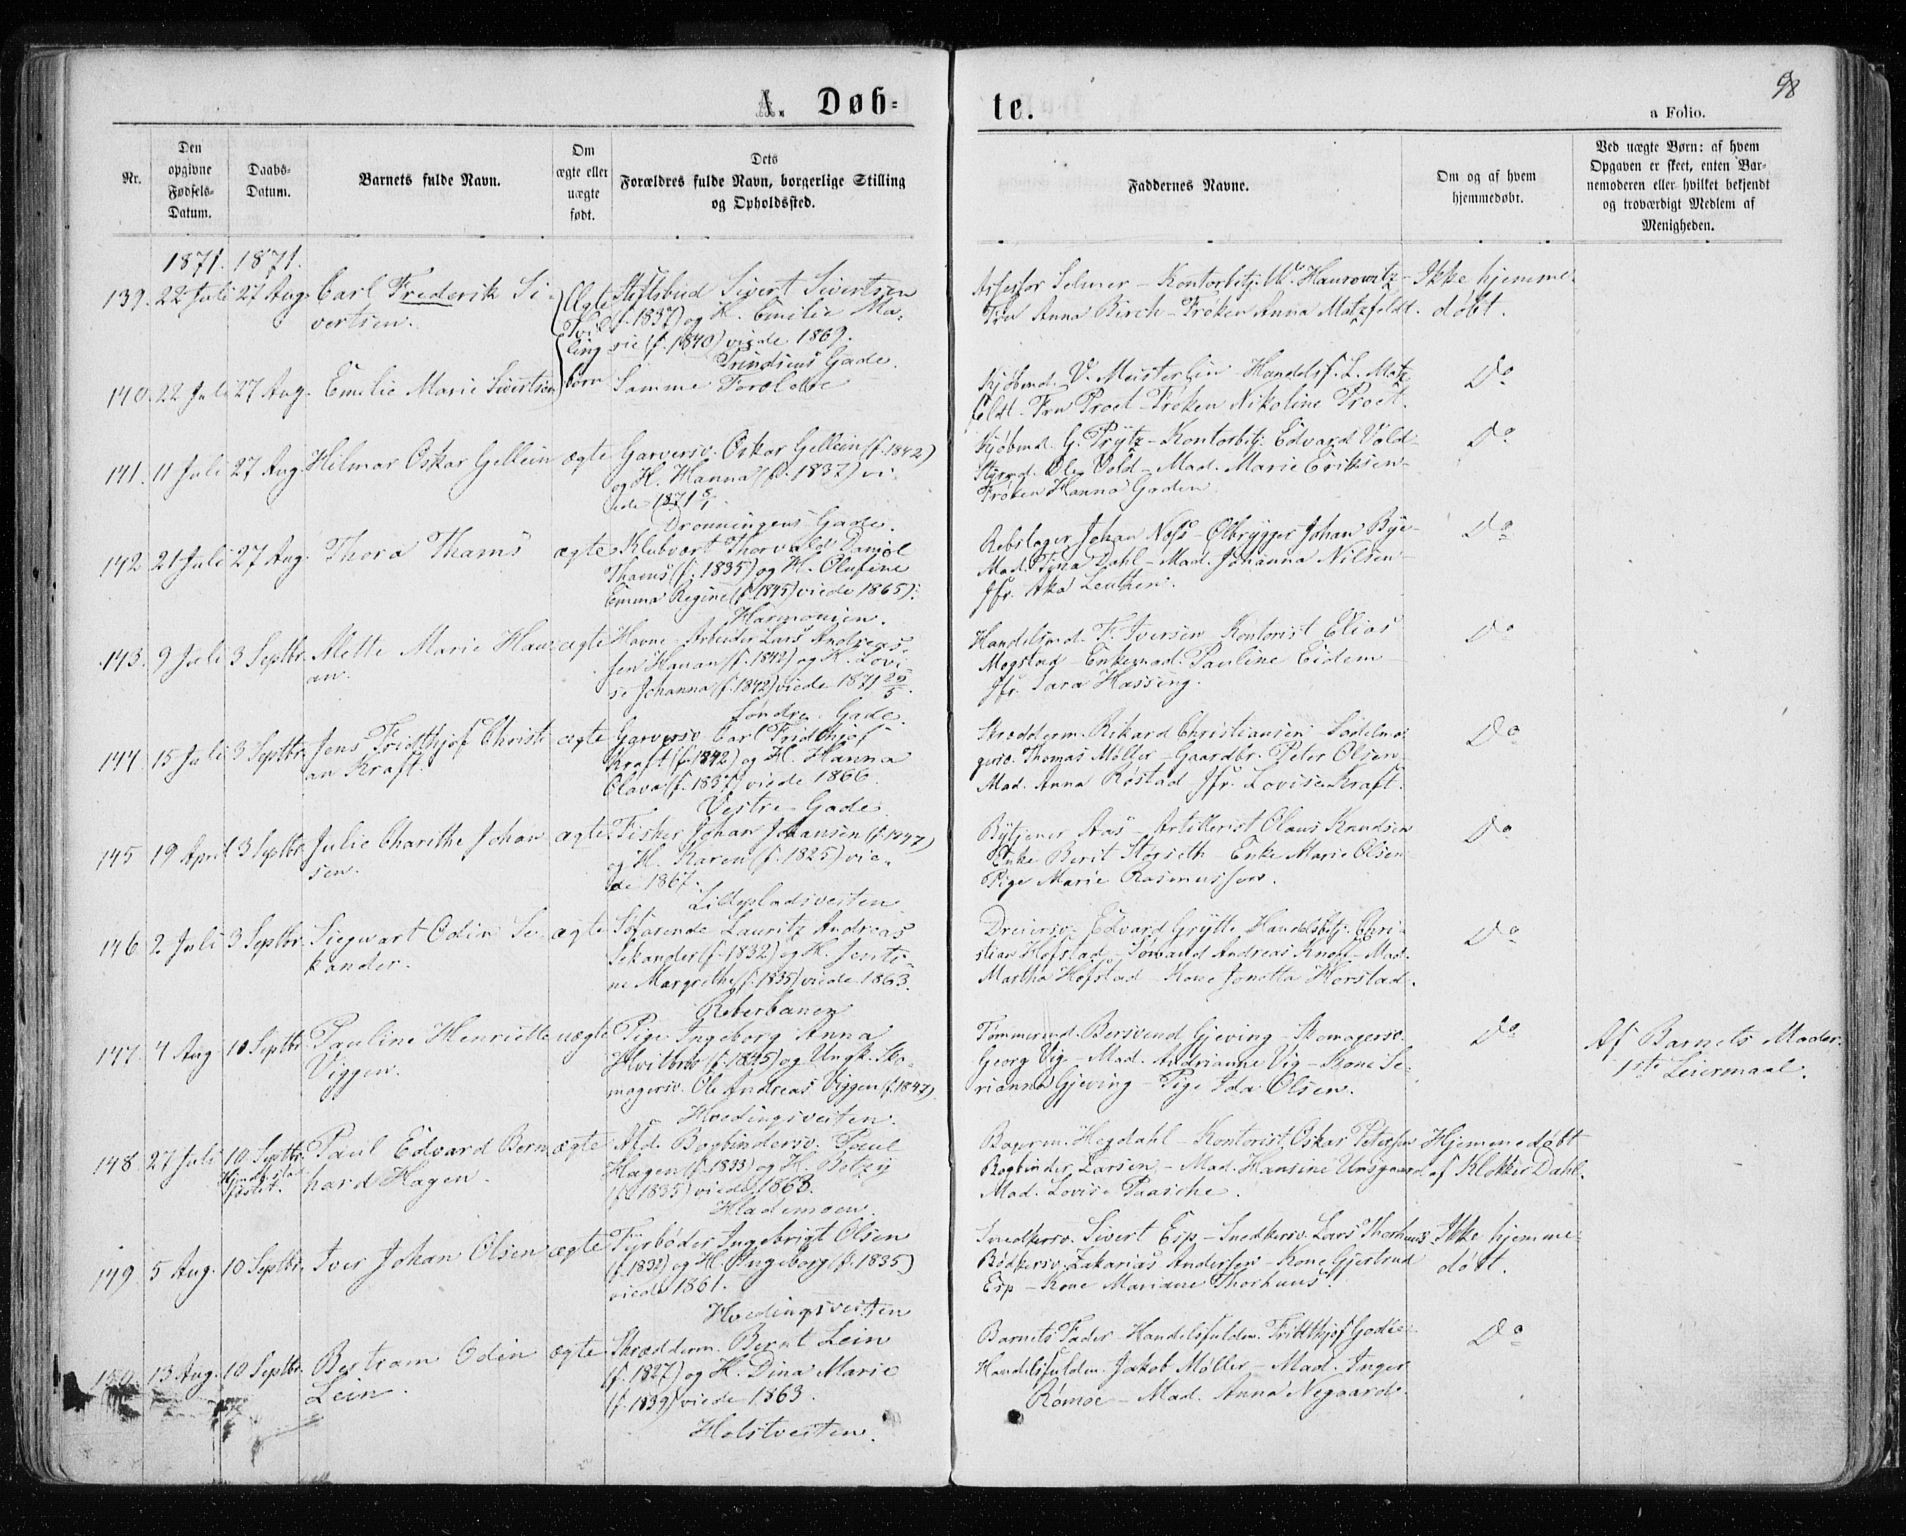 98
A. Døb=
te.
a Folio.
Nr.
Den opgivne Fødsels-Datum.
Daabs-Datum.
Barnets fulde Navn.
Om ægte eller uægte født.
Dets Forældres fulde Navn, borgerlige Stilling og Opholdssted.
Faddernes Navne.
Om og af hvem hjemmedøbt.
Ved uægte Børn: af hvem Opgaven er skeet, enten Barnemoderen eller hvilket bekjendt og troværdigt Medlem af Menigheden.
1871. 1871.
139. 22 Juli 27 Aug. Carl Frederik Si-
vertsen.
Ægte Tvil ling
Stiftsbud Sivert Sivertsen
(f. 1837) og H. Emilie Ma-
rie (f. 1840) viede 1869.
Prindsens Gade.
Assessor Selmer – Kontorbetj. W. Haurowitz –
Fru Anna Birch – Frøken Anna Matzfeldt.
Ikke hjemme-
døbt.
140. 22 Juli 27 Aug. Emilie Marie Sivertsen børn Samme Forældre
Kjøbmd. V. Meisterlin – Handelsf. L. Matz
feldt – Fru Proet – Frøken Nikoline Proet.
Do
141. 11 Juli 27 Aug. Hilmar Oskar Gellein ægte Garversv. Oskar Gellein (f. 1842)
og H. Hanna (f. 1837) vi-
ede 1871
Dronningens Gade.
Kjøbmd. G. Prytz – Kontorbetj. Edvard Vold –
Styrmd. Ole Vold – Mad. Marie Eriksen –
Frøken Hanna Gaden.
Do
142. 21 Juli 27 Aug. Thora Thams ægte Klubvært Thorvald Daniel
Thams (f. 1835) og H. Olufine
Emma Regine (f. 1845) viede 1865).
Harmonien.
Rebslager Johan Næss – Ølbrygger Johan Bye –
Mad. Tina Dahl – Mad. Johanna Nilsen –
Jfr. Aka Leuthen.
Do
143. 9 Juli 3 Septbr. Mette Marie Hau
an.
ægte Havne-Arbeider Lars Andreas-
sen Hauan (f. 1842) og H. Lovi-
se Johanna (f. 1842) viede 1871
Søndre Gade.
Handelsmd. F. Iversen – Kontorist Elias
Mogstad – Enkemad. Pauline Eidem –
Jfr. Sara Hassing.
Do
144. 15 Juli 3 Septbr. Jens Fridthjof Christi
an Kraft.
ægte Garversv. Carl Fridthjof
Kraft (f. 1842) og H. Hanna
Olava (f. 1837) viede 1866.
Vestre Gade.
Skrædderm. Rikard Christiansen – Sadelma-
gersv. Thomas Møller – Gaardbr. Peter Olsen –
Mad. Anna Røstad – Jfr. Lovise Kraft.
Do
145 19 April 3 Septbr. Julie Charithe Johan
sen.
ægte Fisker Johan Johansen (f. 1847)
og H. Karen (f. 1825) vie-
de 1867.
Lillepladsveiten
Bytjener Aas – Artillerist Claus Knudsen
Enke Berit Størseth – Enke Marie Olsen
Pige Marie Rasmussen.
Do
146 2 Juli 3 Septbr. Siegwart Odin Se-
kander.
ægte Søfarende Lauritz Andreas
Sekander (f. 1832) og H. Jenti-
ne Margrethe (f. 1835) viede 1863.
Reberbanen
Dreiersv. Edvard Grytte – Handelsbetj. Chri-
stian Hofstad – Sømand Andreas Knoff – Mad.
Martha Hofstad – Kone Jonetta Horstad.
Do
147. 4 Aug 10 Septbr. Pauline Henriette
Viggen.
uægte Pige Ingeborg Anna
(f. 1845) og Ungk. Sko-
magersv. Ole Andreas Viggen (f. 1847)
Hvedingsveiten.
Tømmermd. Bersvend Gjeving – Skomagersv.
Georg Vig – Mad. Andrianne Vig – Kone Se-
rianna Gjeving – Pige Ida Olsen.
Do
Af Barnets Moder.
1ste Leiermaal.
148. 27 Juli 10 Septbr. Paul Edvard Bern
hard Hagen.
ægte Afd. Bogbindersv. Paul
Hagen (f. 1833) og H. Betzy
(f. 1835) viede 1863.
Hlademoen.
Bagerm. Hegdahl – Kontorist Oskar Petersen
Bogbinder Larsen – Mad. Hansine Unsgaard
Mad. Lovise Paasche.
Hjemmedøbt
af Klokker Dahl.
149 5 Aug. 10 Septbr. Iver Johan Olsen ægte Fyrbøder Ingebrigt Olsen
(f. 1833) og H. Ingeborg (f. 1835)
viede 1861.
Hvedingsveiten
Snedkersv. Sivert Esp – Snedkersv. Lars Thorhuus
Bødkersv. Zakarias Andersen – Kone Gjertrud
Esp – Kone Mariane Thorhuus.
Ikke hjemme-
døbt.
150. 13 Aug. 10 Septbr. Bertram Odin
Lein.
ægte Skrædderm. Bernt Lein
(f. 1827) og H. Dina Marie
(f. 1839) viede 1863.
Holstveiten.
Barnets Fader – Handelsfuldm. Fridthjof Godte
Handelsfuldm. Jakob Møller – Mad. Inger
Rømoe – Mad. Anna Negaard.
Do